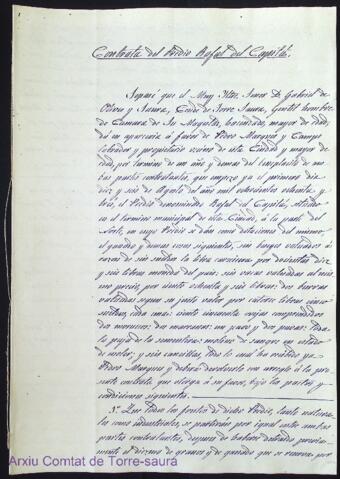 Contrata del Predio Rafal del Capitá.
Separé que el Muy Iltre. Senor D. Gabriel de
Olives y Saura, Conde de Torre Saura, Gentil hombre
de Camara de Su Magestad, hacendado, mayor de edad,
dá en aparceria á favor de Pedro Marqués y Camps
labrador y propietario vecino de esta Ciudad y mayor de
edad, por termino de un año y demas del beneplacito de am-
bas partes contratantes, que empezó ya el primero dia
diez y seis de Agosto del año mil ochocientos ochenta y
tres, el Predio denominado Rafal del Capitá, situado
en el termino municipal de esta Ciudad, á la parte del
Norte, en cuyo Predio se dán como dotaciones del mismo,
el ganado y demas cosas siguientes, seis bueyes valorados á
razon de seis sueldos la libra carnicera por doscientas diez
y seis libras moneda del pais: seis vacas valoradas al mis-
mo precio, por ciento ochenta y seis libras: dos burras
valoradas segun su justo valor por catorce libras cinco
sueldos, cada una: ciento cincuenta ovejas comprendidos
dos moruecos: dos marranas: un puerco y dos puercas: toda
la paja de la sementera: molino de sangre en estado
de moler; y seis canastillas, todo lo cual ha recibido ya
Pedro Marqués y deberá devolverlo con arreglo á la pre-
sente contrata que otorga á su favor, bajo los pactos y
condiciones siguientes.
1º. Que todos los frutos de dicho Predio, tanto natura-
les como industriales, se partirán por igual entre ambas
partes contratantes, despues de haberse deducido previa-
mente el diezmo de granos y de ganado que se reserva por
Arxiu Comtat de Torre-saura